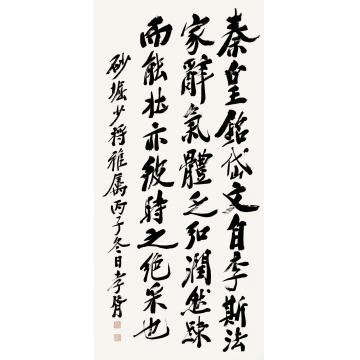 秦皇銘岱文自李斯法
家辭氣體乏弘潤然疎
而能壯亦彼時之絕采也
砂堀少将雅属丙子冬日孝胥